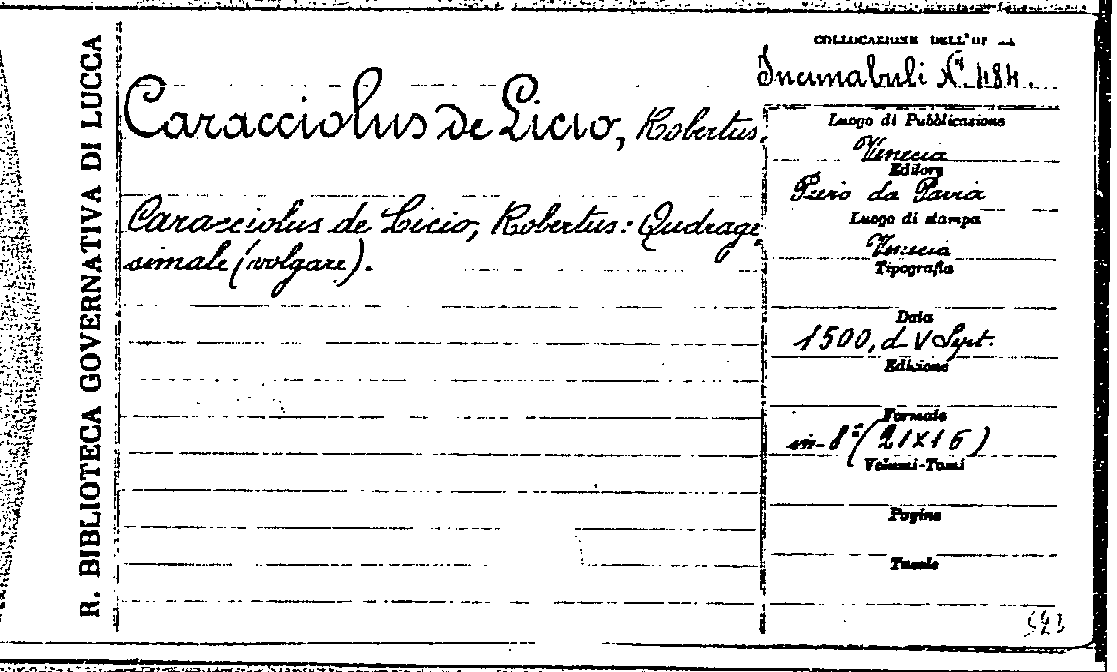 R. BIBLIOTECA GOVERNATIVA DI LUCCA
COLLOCAZIONE DELL'OP
Incunabuli N.° 484.
Caracciolus de Licio, Robertus.
Caracciolus de Licio, Robertus: Qudrage
simale (volgare).
Luogo di Pubblicazione
Venecia
Editore
Piero da Pavia
Luogo di stampa
Venecia
Tipografia
Data
1500, d V Sept.
Edizione
Formato
in-8° (21x15)
Volumi-Tomi
Pagine
Tavole
523